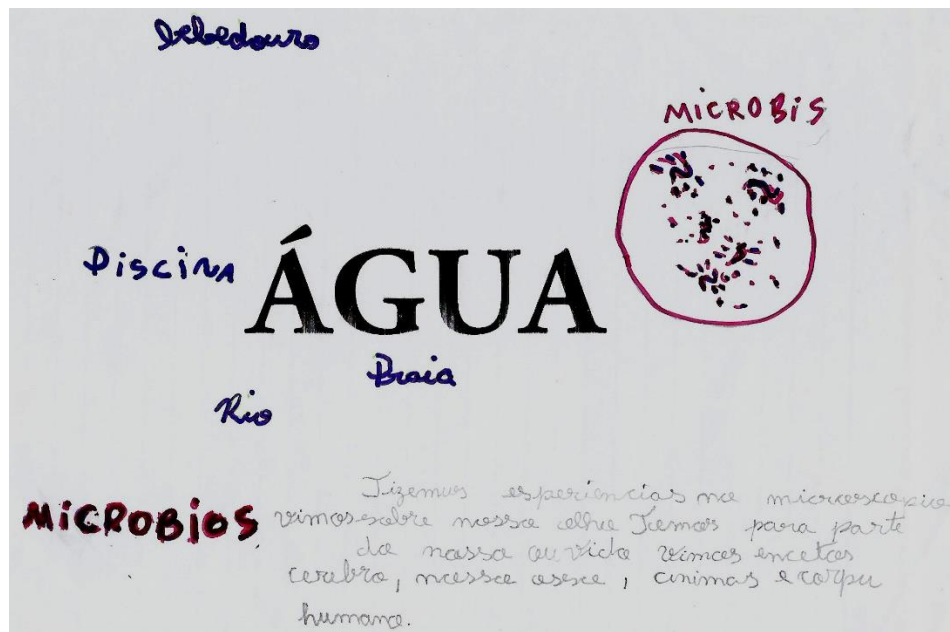 bebedouro
MICROBIS
PisciNA
ÁGUA
Praia
Rio
MICROBIOS
Fizemus esperiencias no microoscopio
vimos sobre nosso olho Fomos para parte
do nosso ouvido vimos encetos
cerebro, nosso osso, animas e corpu
humano.